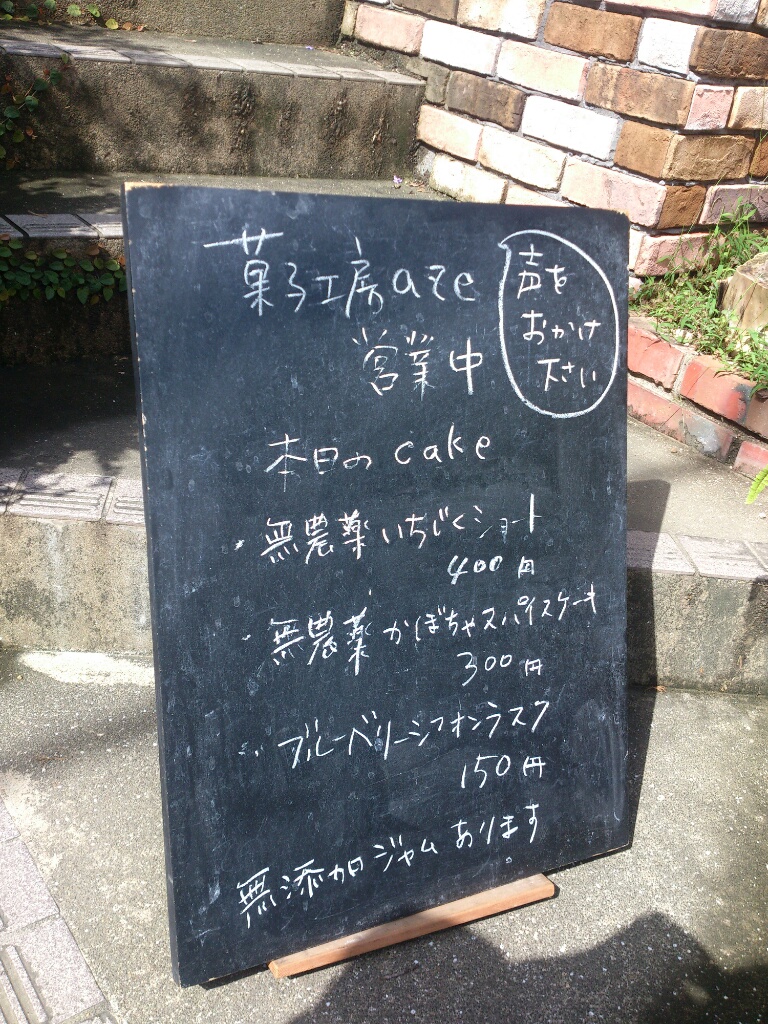 菓子工房aze
営業中
声を
おかけ
下さい
本日のcake
・無農薬いちじくショート
400円
・無農薬かぼちゃスパイスケーキ
300円
・ブルーベリーシフォンラスク
150円
無添加ジャムあります。